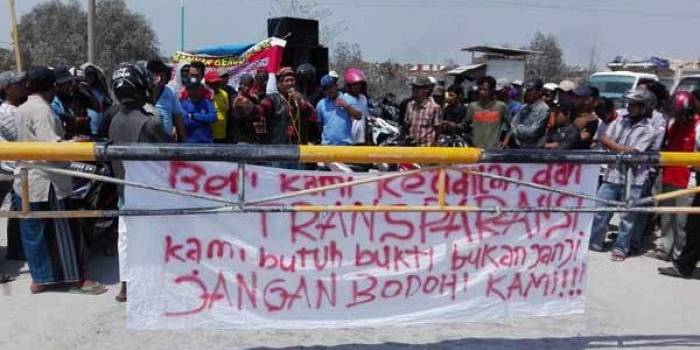 Beri kami keadilan dan
TRANSPARANSI
kami butuh bukti bukan janji
JANGAN BODOHI KAMI!!!